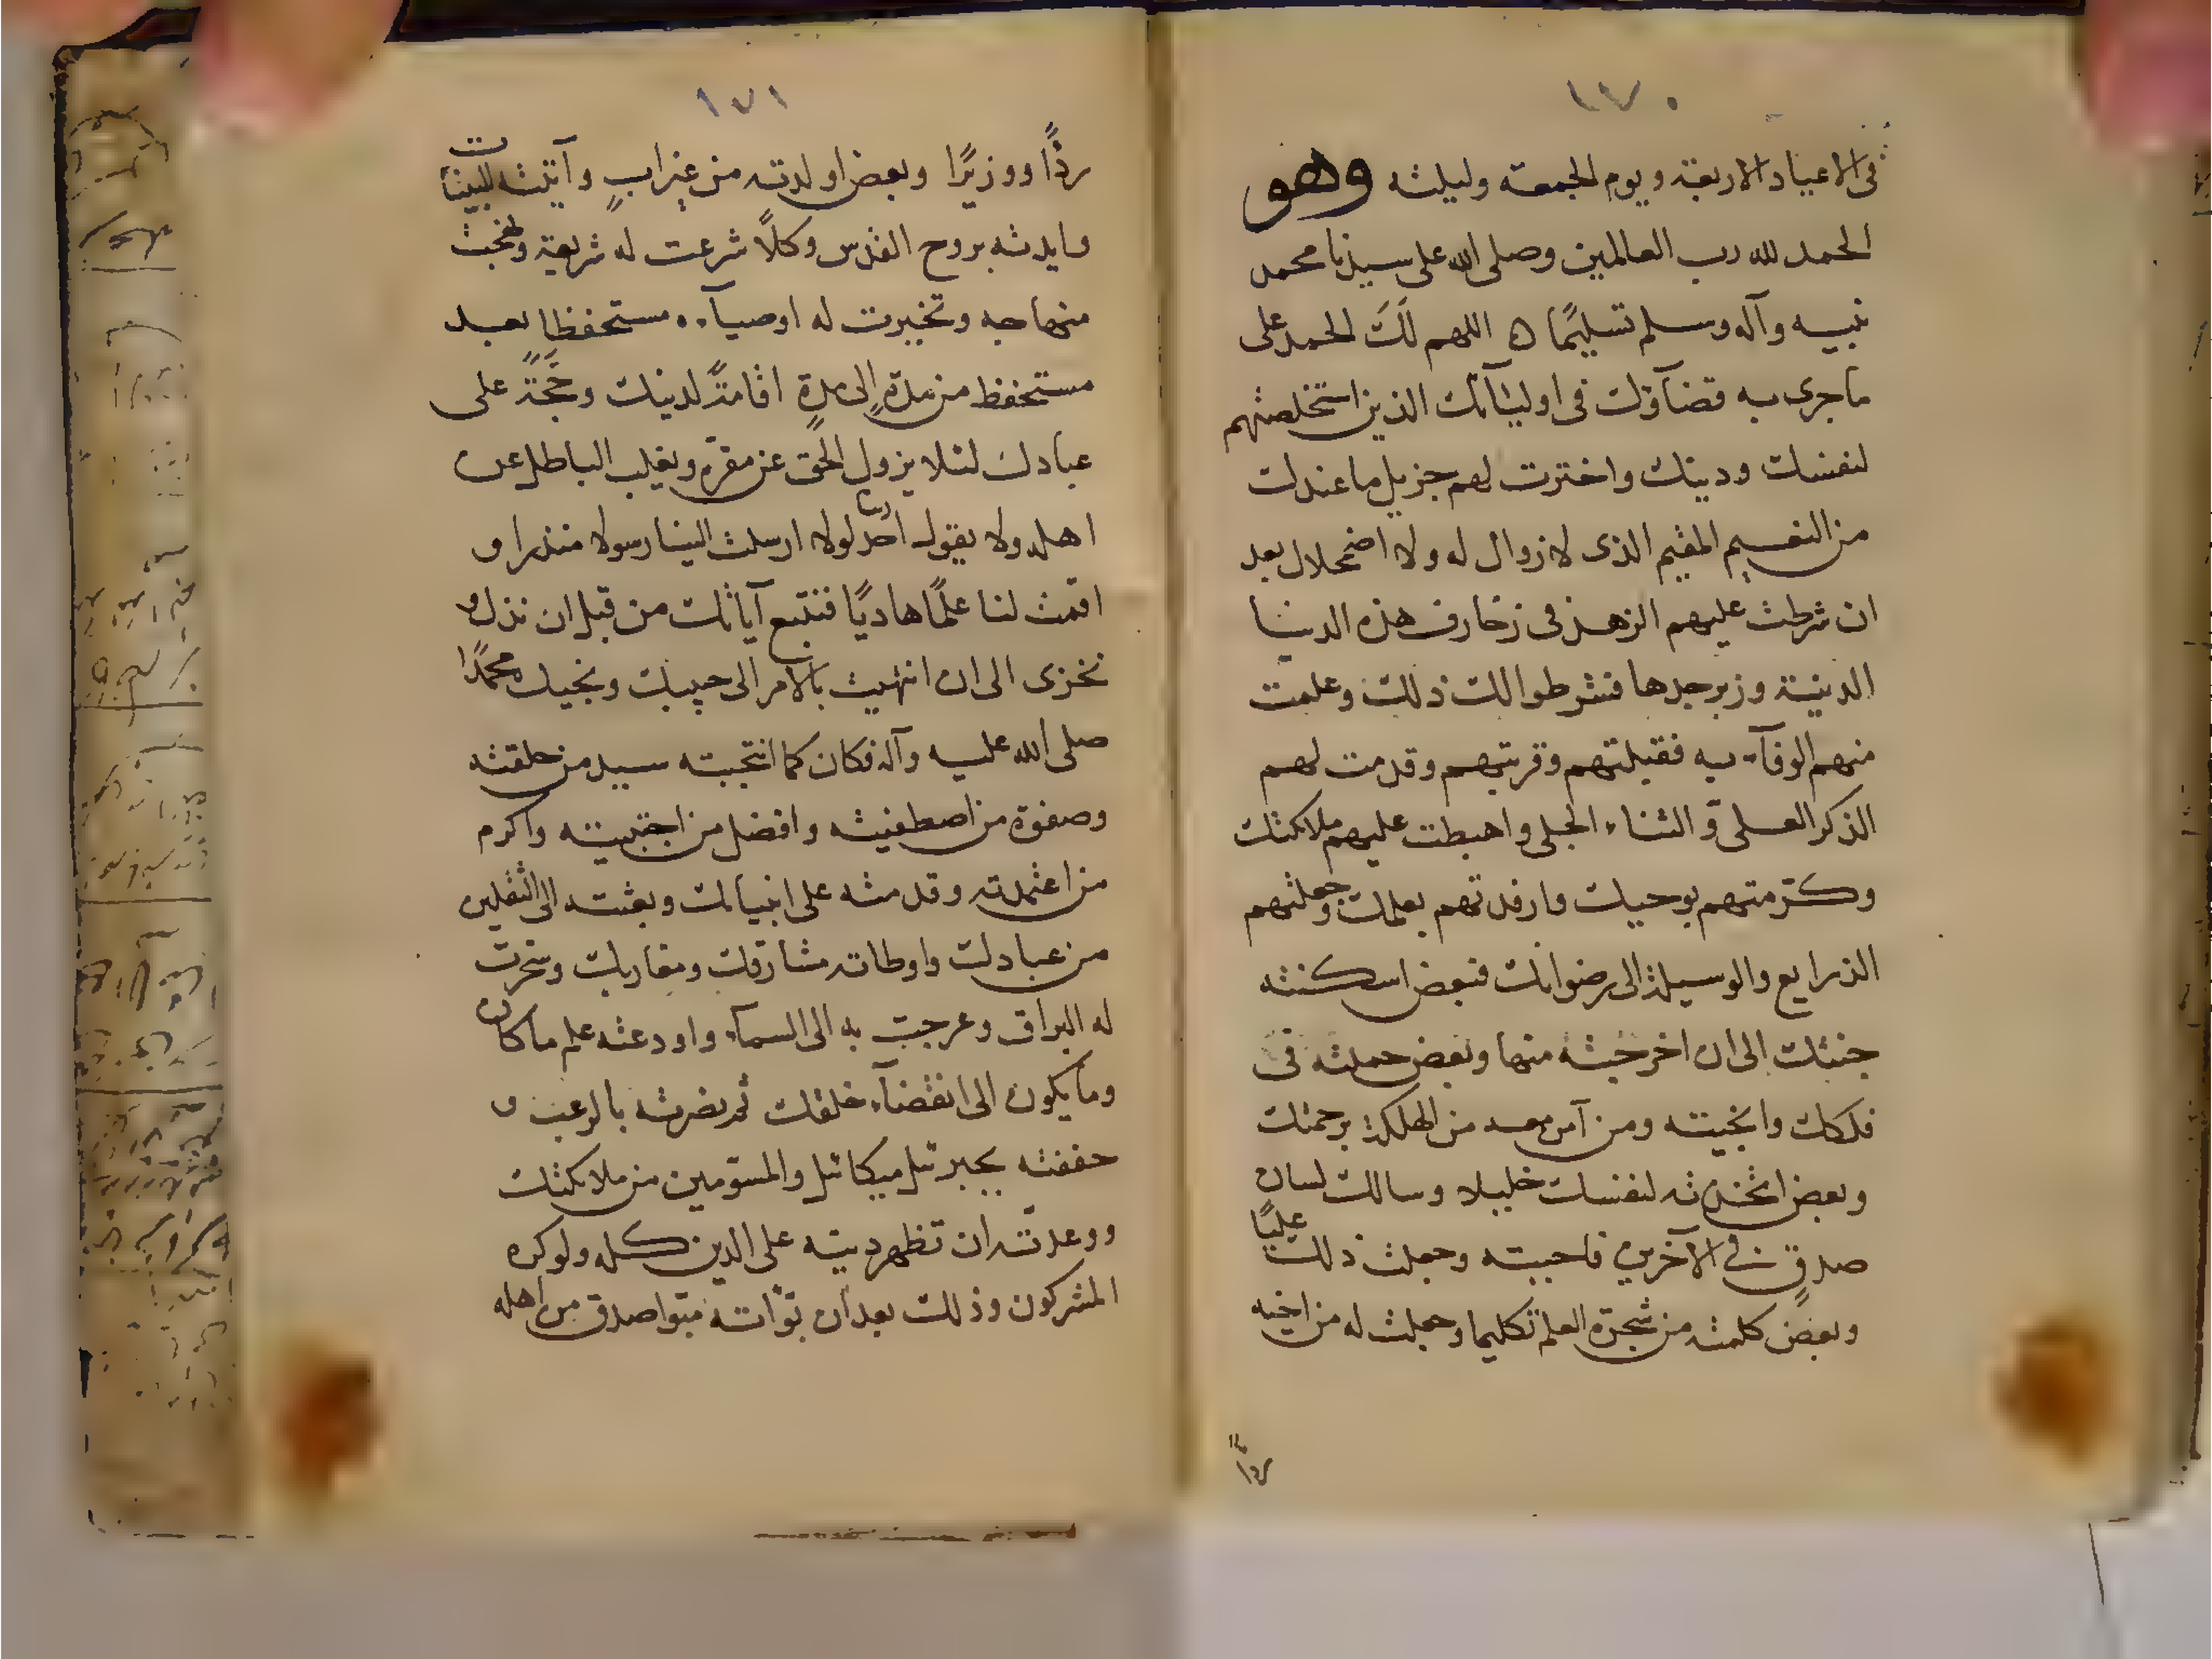 ١٧٠
فى الاعياد الاربعة ويوم الجمعة وليلته وهو
الحمد لله رب العالمين وصلى الله على سيدنا محمد
نبيه وآله وسلم تسليمًا ه اللهم لَكَ الحمد على
ما جرى به قضآؤك فى اوليآئك الذين استخلصتهم
لنفسك ودينك واخترت لهم جزيل ما عندك
من النعيم المقيم الذى لا زوال له ولا اضمحلال بعد
ان شرطت عليهم الزهد فى زخارف هذه الدنيا
الدينية وزبرجدها فشرطوا لك ذلك وعلمت
منهم الوفآء به فقبلتهم وقربتهم وقدمت لهم
الذكر العلى و الثناء الجلى واهبطت عليهم ملائكتك
وكرّمتهم بوحيك وارفدتهم بعلمك وجعلتهم
الذرايع والوسيلة الى رضوانك فبعض اسكنته
جنتك الى ان اخرجته منها وبعض حملته فى
فلكك وانجيته ومن آمن معه من الهلكة برحمتك
وبعض اتخذته لنفسك خليلا وسالك لسان
صدقٍ فى الآخرين فاجبته وجعلت ذلك عليًا
وبعضً كلمته من شجرة العلم تكليما وجعلت له من اخيه
ردًا
١٧١
ردًا ووزيرًا وبعض اولدته من غير ابٍ وآتيته البينات
وايدته بروح القدس وكلاً شرعت له شريعة ونهجت
منهاجه وتخيرت له اوصيآء مستحفظا بعد
مستحفظ من مدةٍ الى مدةٍ اقامةً لدينك وحُجَّةً على
عبادك لئلا يزول الحق عن مقره ويغلب الباطل على
اهله ولا يقول احد لولا ارسلت الينا رسولا منذرا و
اقمت لنا علمًا هاديًا فنتبع آياتك من قبل ان نذل و
نخزى الى ان انتهيت بالامر الى حبيبك ونجيك محمدًا
صلى الله عليه وآله فكان كما انتجبته سيد من خلقته
وصفوة من اصطفيته وافضل من اجتبيته واكرم
من اعتمدته وقدمته على انبيائك وبعثته الى الثقلين
من عبادك واوطاته مشارقك ومغاربك وسخرت
له البراق وعرجت به الى السمآء واودعته علم ما كان
وما يكون الى انقضآء خلقك ثم نصرته بالرعب و
حففته بجبرئيل ميكائيل والمسّومين من ملائكتك
ووعدته ان تظهر دينه على الدين كله ولو كره
المشركون وذلك بعد ان بوّاته مبوا صدق من اهله